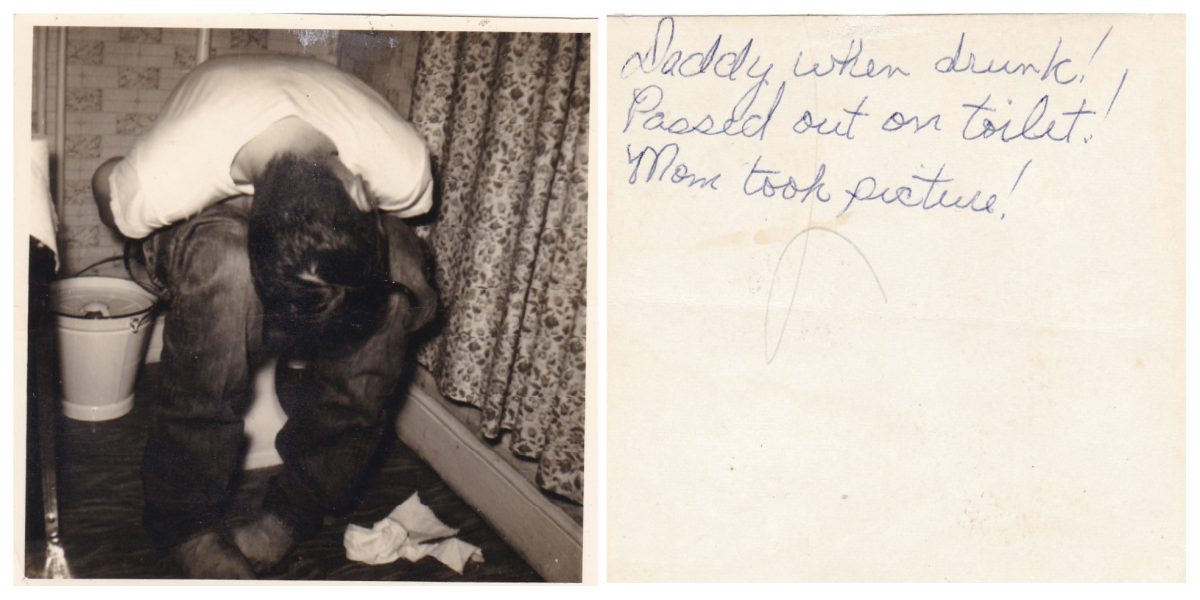 Daddy when drunk!
Passed out on toilet!
Mom took picture!